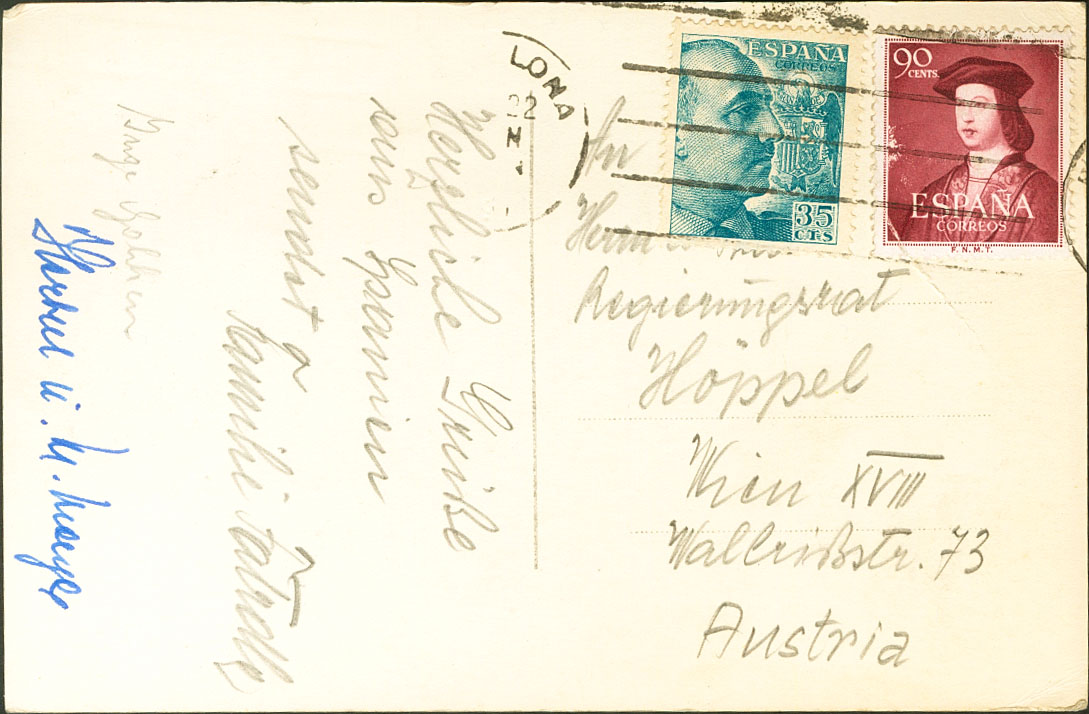 Herzliche Grüße
aus Spanien
sendet
Familie
Inge
u.
LONA
22
ESPAÑA
CORREOS
35
CTS
90
CENTS.
ESPAÑA
CORREOS
F.N.M.T.
An
Regierungsrat
Höppel
Wien XVIII
Wallrißstr. 73
Austria